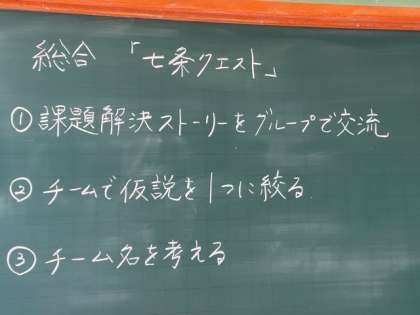 総合 「七条クエスト」
①課題解決ストーリーをグループで交流
②チームで仮説を1つに絞る
③チーム名を考える